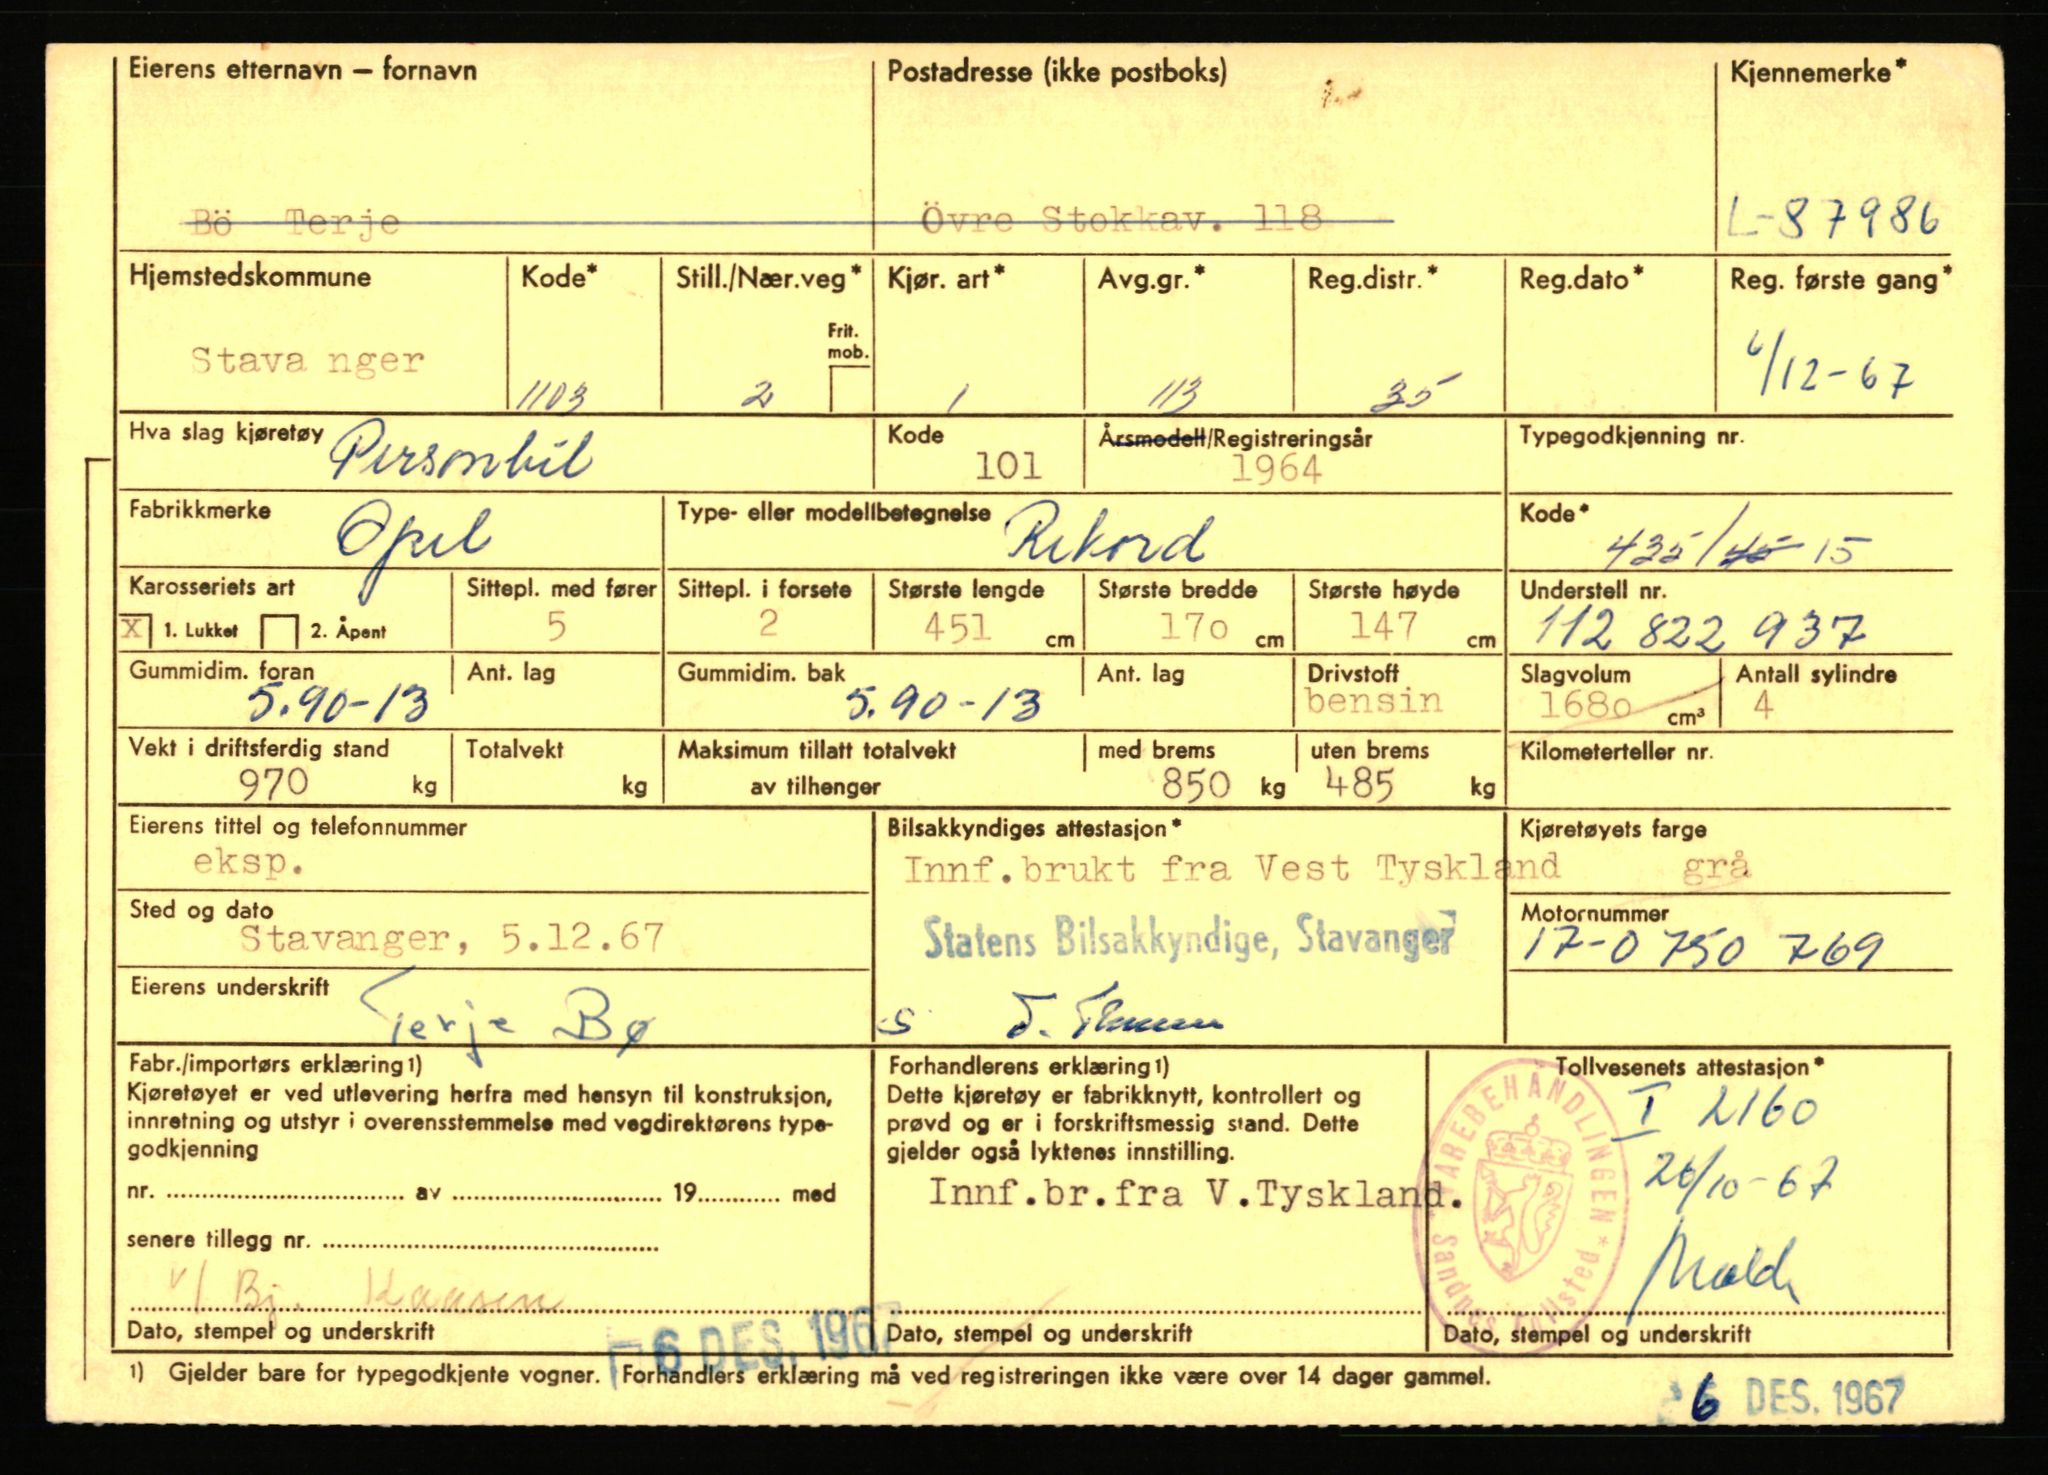 Eierens etternavn – fornavn
Postadresse (ikke postboks)
Kjennemerke*
Bö Terje
Övre Stokkav. 118
L-87986
Hjemstedskommune
Kode*
Still./Nær.veg*
Kjør. art*
Avg.gr.*
Reg.distr.*
Reg.dato*
Reg. første gang*
Frit.
mob.
Stava nger
1103
2
1
113
35
6/12-67
Hva slag kjøretøy
Personbil
Kode
101
Årsmodell/Registreringsår
1964
Typegodkjenning nr.
Fabrikkmerke
Opel
Type- eller modellbetegnelse
Rekord
Kode*
435/45 15
Karosseriets art
X 1. Lukket 2. Åpent
Sittepl. med fører
5
Sittepl. i forsete
2
Største lengde
451 cm
Største bredde
170 cm
Største høyde
147 cm
Understell nr.
112 822 937
Gummidim. foran
5.90-13
Ant. lag
Gummidim. bak
5.90-13
Ant. lag
Drivstoff
bensin
Slagvolum
1680 cm³
Antall sylindre
4
Vekt i driftsferdig stand
970 kg
Totalvekt
kg
Maksimum tillatt totalvekt
av tilhenger
med brems
850 kg
uten brems
485 kg
Kilometerteller nr.
Eierens tittel og telefonnummer
eksp.
Bilsakkyndiges attestasjon*
Innf.brukt fra Vest Tyskland
Kjøretøyets farge
grå
Sted og dato
Stavanger, 5.12.67
Statens Bilsakkyndige, Stavanger
Motornummer
17-0750 769
Eierens underskrift
Terje Bø
S
Fabr./importørs erklæring 1)
Kjøretøyet er ved utlevering herfra med hensyn til konstruksjon,
innretning og utstyr i overensstemmelse med vegdirektørens type-
godkjenning
nr. ............ av ............ 19............ med
senere tillegg nr. ............
v/ Bj. Kaasen
Dato, stempel og underskrift
6 DES. 1967
Forhandlerens erklæring 1)
Dette kjøretøy er fabrikknytt, kontrollert og
prøvd og er i forskriftsmessig stand. Dette
gjelder også lyktenes innstilling.
Innf.br.fra V.Tyskland.
Dato, stempel og underskrift
Tollvesenets attestasjon*
I 2160
26/10-67
VAREBEHANDLINGEN * Sandnes Tollsted *
Dato, stempel og underskrift
1) Gjelder bare for typegodkjente vogner. Forhandlers erklæring må ved registreringen ikke være over 14 dager gammel.
6 DES. 1967